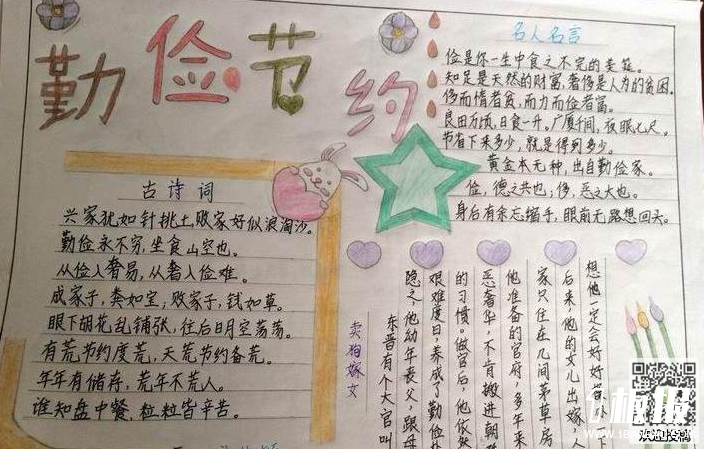 勤俭节约
古诗词
兴家犹如针挑土，败家好似浪淘沙。
勤俭永不穷，坐食山空也。
从俭入奢易，从奢入俭难。
成家子，粪如宝；败家子，钱如草。
眼下胡花乱铺张，往后日月空荡荡。
有荒节约度荒，无荒节约备荒。
年年有储存，荒年不荒人。
谁知盘中餐，粒粒皆辛苦。
名人名言
俭是你一生中食之不完的美筵。
知足是天然的财富，奢侈是人为的贫困。
侈而惰者贫，而力而俭者富。
良田万顷，日食一升。广厦千间，夜眠七尺。
节省下来多少，就是得到多少。
黄金本无种，出自勤俭家。
俭，德之共也；侈，恶之大也。
身后有余忘缩手，眼前无路想回头。
卖狗嫁女
东晋有个大官叫
隐之，他幼年丧父，跟母
艰难度日，养成了勤俭
的习惯。做官后，他依然
恶奢华，不肯搬进朝
他准备的官府，多年来
家只住在几间茅草房
后来，他的女儿出嫁，人
想他一定会好好